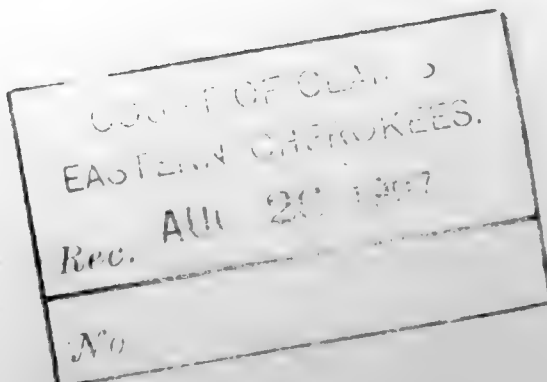 COURT OF CLAIMS
EASTERN CHEROKEES.
Rec. AUG 20 1907
No